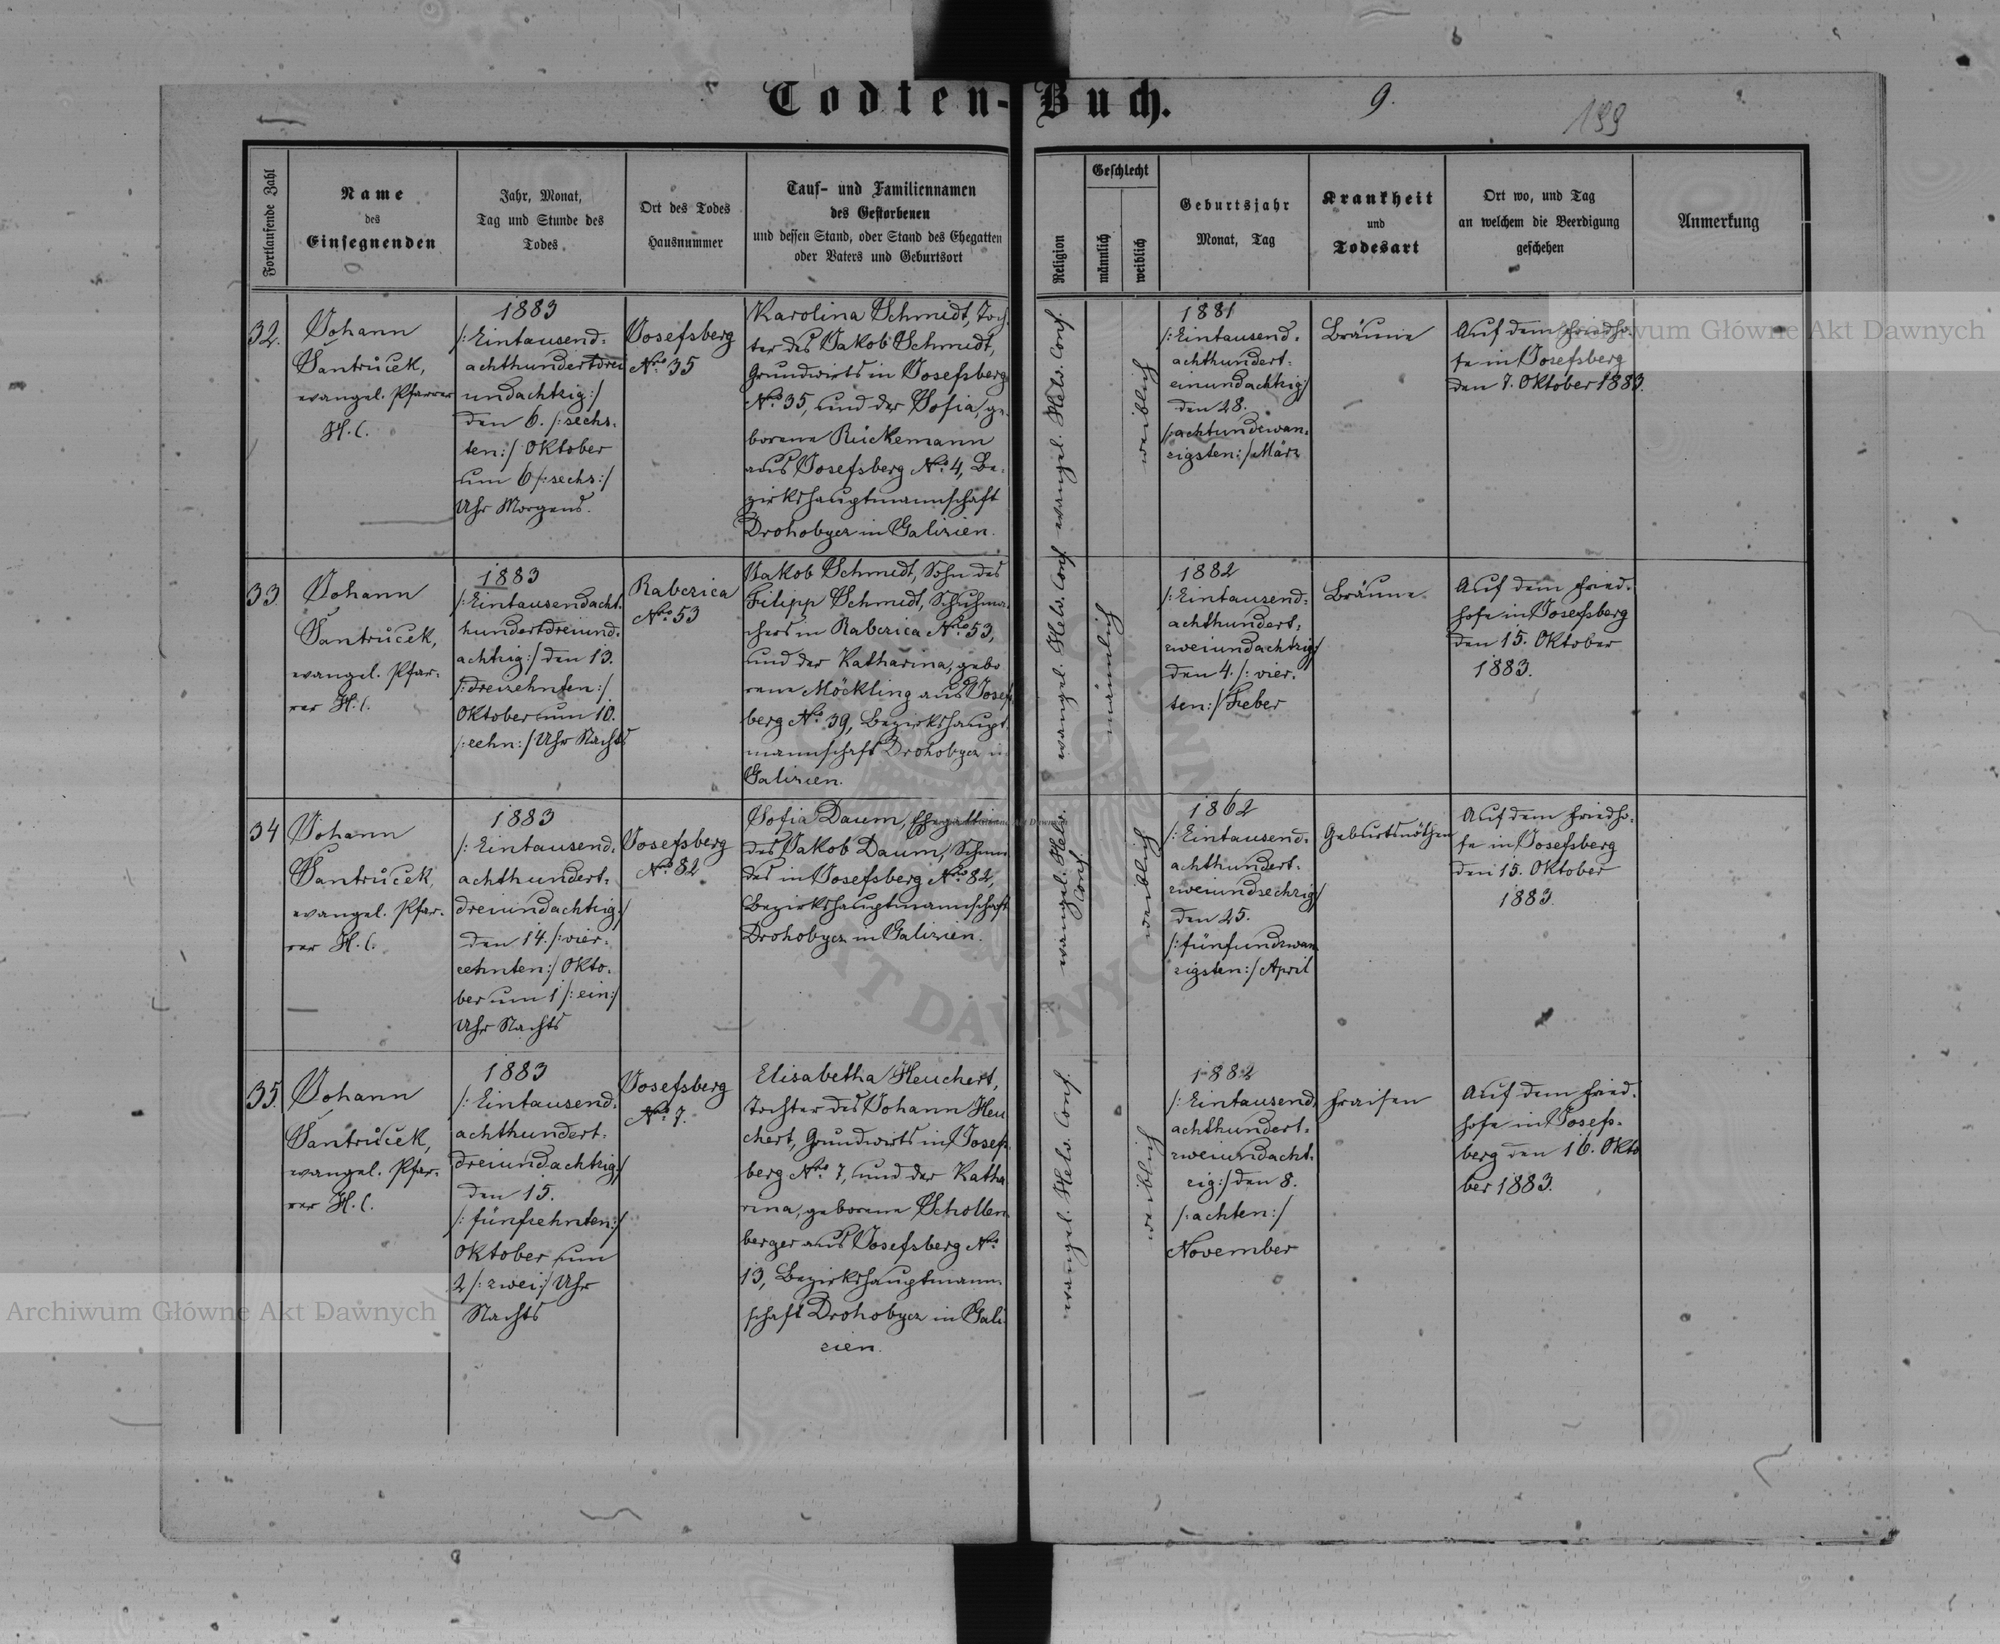 Todten-Buch.
9.
199
Fortlaufende Zahl
Name
des
Einsegnenden
Jahr, Monat,
Tag und Stunde des
Todes
Ort des Todes
Hausnummer
Tauf- und Familiennamen
des Gestorbenen
und dessen Stand, oder Stand des Ehegatten
oder Vaters und Geburtsort
Religion
Geschlecht
männlich
weiblich
Geburtsjahr
Monat, Tag
Krankheit
und
Todesart
Ort wo, und Tag
an welchem die Beerdigung
geschehen
Anmerkung
32.
Johann
Santruček,
evangel. Pfarrer
H. C.
1883
/: Eintausend-
achthundertdrei
undachtzig :/
den 6. /: sechs-
ten :/ Oktober
um 6 /: sechs :/
Uhr Morgens.
Josefsberg
Nro 35
Karolina Schmidt, Toch-
ter des Jakob Schmidt,
Grundwirts in Josefsberg
Nro 35, und der Sofia, ge-
borene Rückemann
aus Josefsberg Nro 4, Be-
zirkshauptmannschaft
Drohobycz in Galizien.
evangel. Helv. Conf.
weiblich
1881
/: Eintausend-
achthundert-
einundachtzig :/
den 28.
/: achtundzwan-
zigsten :/ März
Bräune
Auf dem Friedho-
fe in Josefsberg
den 7. Oktober 1883.
33.
Johann
Santruček,
evangel. Pfar-
rer H. C.
1883
/: Eintausendacht-
hundertdreiund-
achtzig :/ den 13.
/: dreizehnten :/
Oktober um 10.
/: zehn :/ Uhr Nachts
Rabczica
Nro 53
Jakob Schmidt, Sohn des
Filipp Schmidt, Schuhma-
chers in Rabczica Nro 53,
und der Katharina, gebo
rene Möckling aus Josef
berg Nro 39, Bezirkshaupt
mannschaft Drohobycz in
Galizien.
evangel. Helv. Conf.
männlich
1882
/: Eintausend-
achthundert-
zweiundachtzig :/
den 4. /: vier-
ten :/ Feber
Bräune
Auf dem Fried-
hofe in Josefsberg
den 15. Oktober
1883.
34
Johann
Santruček,
evangel. Pfar-
rer H. C.
1883
/: Eintausend-
achthundert-
dreiundachtzig :/
den 14. /: vier-
zehnten :/ Okto-
ber um 1 /: ein :/
Uhr Nachts
Josefsberg
Nro 82
Sofia Daum, Ehegattin
des Jakob Daum,
des in Josefsberg Nro 82,
Bezirkshauptmannschaft
Drohobycz in Galizien.
evangel. Helv.
Conf.
weiblich
1862
/: Eintausend-
achthundert-
zweiundsechzig :/
den 25.
/: fünfundzwan
zigsten :/ April
Geburtsnöthen
Auf dem Friedho-
fe in Josefsberg
den 15. Oktober
1883.
35.
Johann
Santruček,
evangel. Pfar-
rer H. C.
1883
/: Eintausend-
achthundert-
dreiundachtzig :/
den 15.
/: fünfzehnten :/
Oktober um
2 /: zwei :/ Uhr
Nachts
Josefsberg
Nro 7.
Elisabetha Heuchert,
Tochter des Johann Heu
chert, Grundwirts in Josefs
berg Nro 7, und der Katha
rina, geborene Schollen
berger aus Josefsberg Nro
13, Bezirkshauptmann-
schaft Drohobycz in Gali
zien.
evangel. Helv. Conf.
weiblich
1882
/: Eintausend-
achthundert-
zweiundacht-
zig :/ den 8.
/: achten :/
November
Fraisen
Auf dem Fried-
hofe in Josefs-
berg den 16. Okto
ber 1883.
Archiwum Główne Akt Dawnych
Archiwum Główne Akt Dawnych